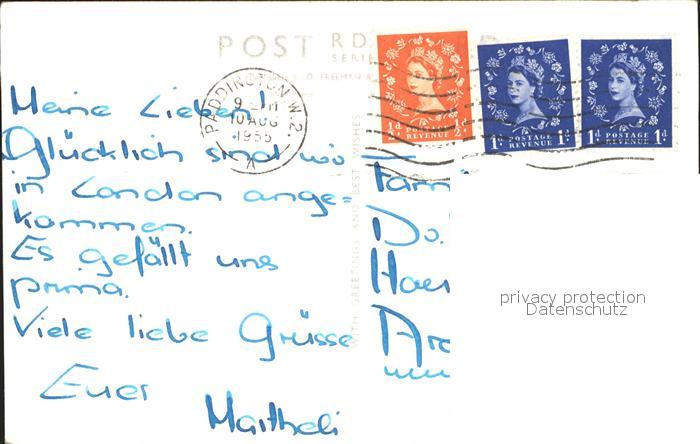 POST RD
SERIE
PADDINGTON W.2.
10 AUG
1955
A
½d POSTAGE REVENUE ½d
1d POSTAGE REVENUE 1d
1d POSTAGE REVENUE 1d
WITH GREETINGS AND BEST WISHES
Meine Lieben!
Glücklich sind wir
in London ange=
kommen.
Es gefällt uns
prima.
Viele liebe Grüsse
Euer
Fam
Do.
Hau
privacy protection
Datenschutz